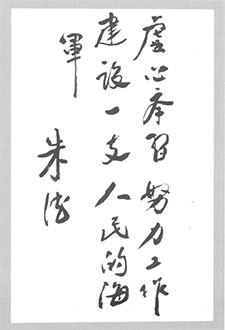 虚心学習 努力工作
建设一支人民的海
軍
朱德